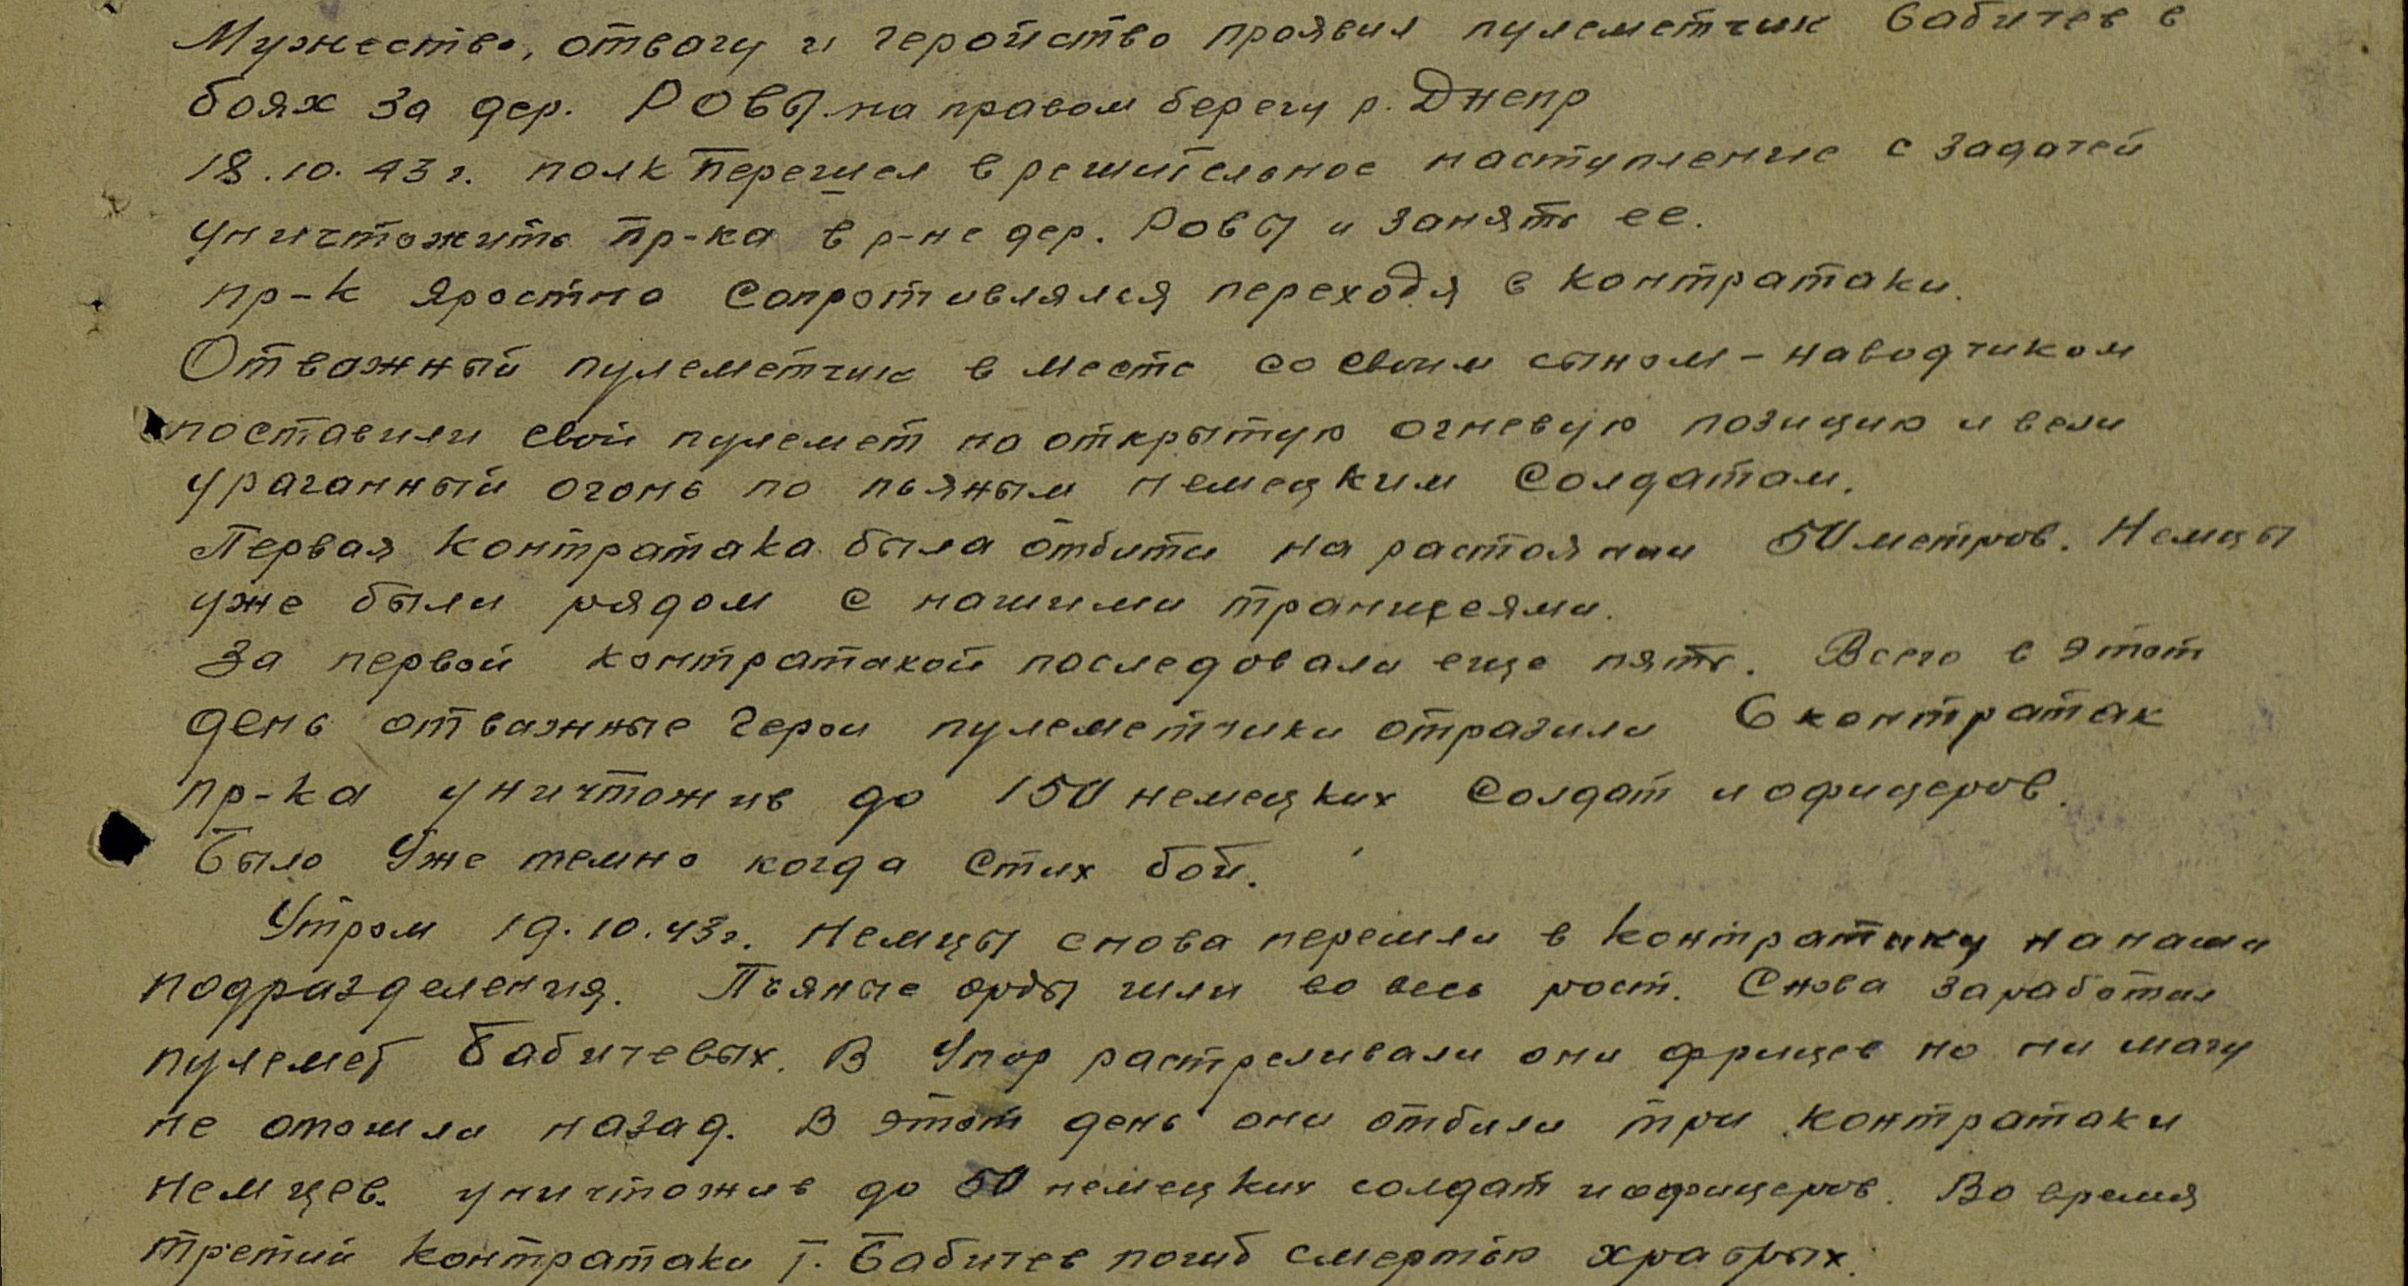 Мужество, отвагу и геройство проявил пулеметчик Бабичев в
боях за дер. РОВЫ на правом берегу р. Днепр
18.10.43 г. полк перешел в решительное наступление с задачей
уничтожить пр-ка в р-не дер. РОВЫ и занять ее.
пр-к яростно сопротивлялся переходя в контратаки.
Отважный пулеметчик в месте со своим сыном - наводчиком
поставили свой пулемет на открытую огневую позицию и вели
ураганный огонь по пьяным немецким солдатам.
Первая контратака была отбита на растоянии 50 метров. Немцы
уже были рядом с нашими траншеями.
За первой контратакой последовали еще пять. Всего в этот
день отважные герои пулеметчики отразили 6 контратак
пр-ка уничтожив до 150 немецких солдат и офицеров.
Было уже темно когда стих бой.
Утром 19.10.43 г. немцы снова перешли в контратаку на наши
подразделения. Пьяные орды шли во весь рост. Снова заработал
пулемет Бабичевых. В упор растреливали они фрицев но ни шагу
не отошли назад. В этот день они отбили три контратаки
немцев. уничтожив до 50 немецких солдат и офицеров. Во время
третий контратаки т. Бабичев погиб смертью храбрых.